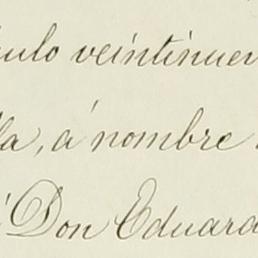 culo veintinuev
lla, á nombre
Don Eduard